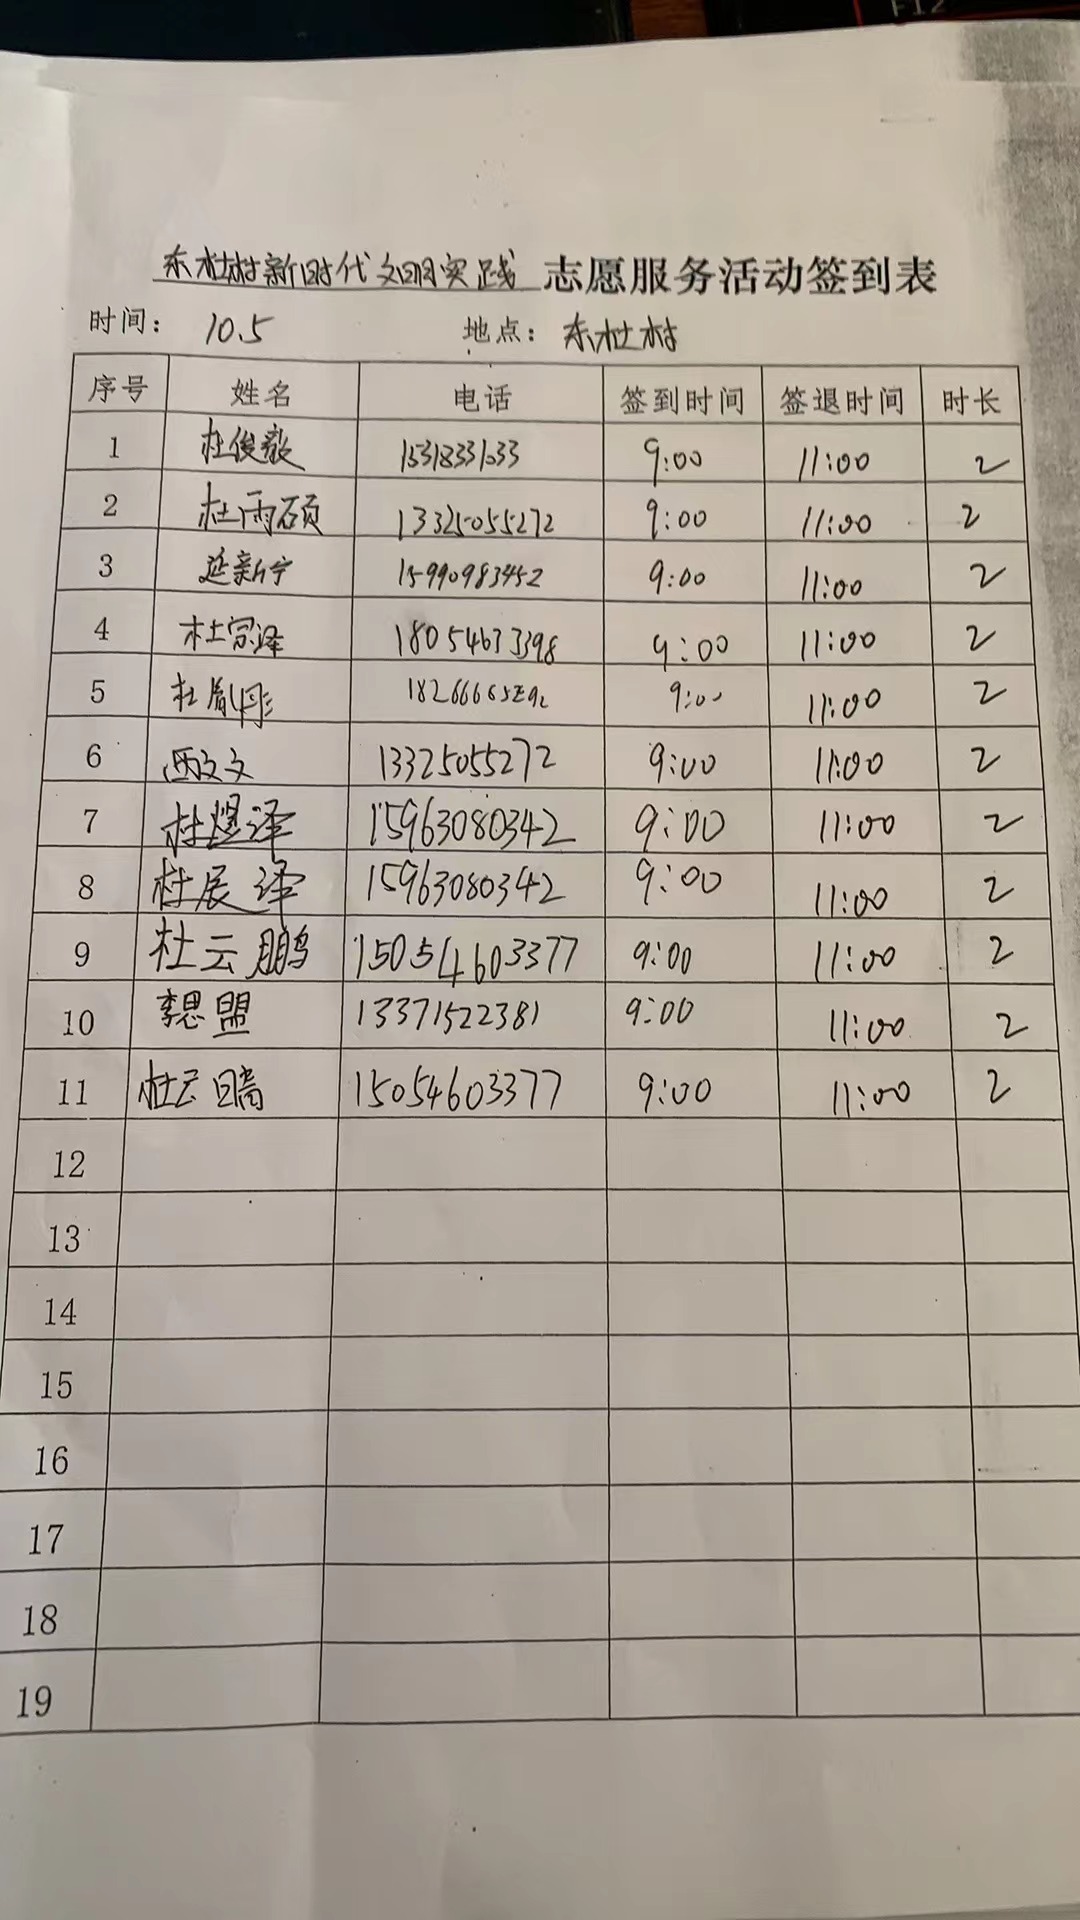 F12
东杜村新时代文明实践 志愿服务活动签到表
时间： 10.5 地点： 东杜村
序号 姓名 电话 签到时间 签退时间 时长
1 杜俊毅 9:00 11:00 2
2 杜雨硕 13325055272 9:00 11:00 2
3 延新宁 15990983452 9:00 11:00 2
4 杜宗泽 18054633398 9:00 11:00 2
5 杜胤彤 9:00 11:00 2
6 西文文 13325055272 9:00 11:00 2
7 杜煜泽 15963080342 9:00 11:00 2
8 杜展泽 15963080342 9:00 11:00 2
9 杜云鹏 15054603377 9:00 11:00 2
10 李思盟 13371522381 9:00 11:00 2
11 杜云 15054603377 9:00 11:00 2
12
13
14
15
16
17
18
19